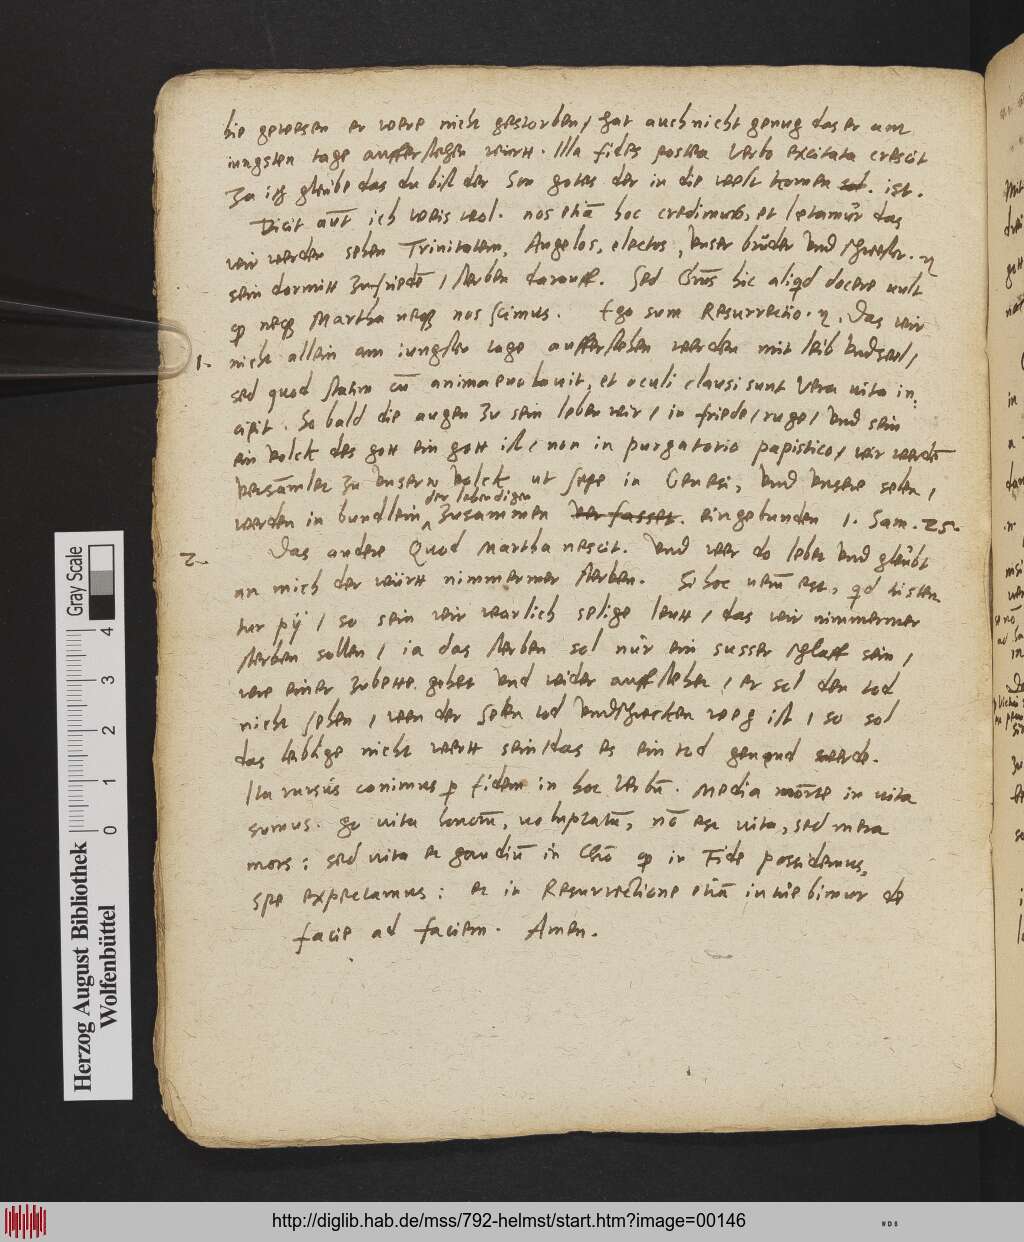 hie gewesen er were nicht gestorben / hat auch nicht genug das er am
iungsten tage aufferstehen wirtt. Illa fides postea verbo excitata crescit
Ja ich gleube das du bist der Son gotes der in die welt komen sol. ist.
Dicit aut ich weis wol. nos etiā hoc credimus, et letamur das
wir werden sehen Trinitatem, Angelos, electos, vnser brüder vnd schwester.
sein dormitt zufriedē / sterben darauff. Sed Chrūs hic aliqd docere uult
neqꝫ Martha neqꝫ nos scimus. Ego sum Resurrectio. Das wir
1. nicht allein am iungsten tage aufferstehen werden mit leib vnd seel /
sed quod statim cū anima euolauit, et oculi clausi sunt vera uita in,
cipit. So bald die augen zu sein leben wir / in friede / ruge / vnd sein
ein volck des gott ein gott ist / non in purgatorio papistico / wir werdē
versāmlet zu vnserm volck ut sepe in Genesi, vnd vnsere selen /
der lebendigen
werden in bundlein zusammen verfasset. eingebunden 1. Sam. 25.
2. Das andere Quod Martha nescit. vnd wer do lebet vnd gleubt
an mich der württ nimmermer sterben. Si hoc uerū est, qd
pij / so sein wir warlich selige leutt / das wir nimmermer
sterben sollen / ia das sterben sol nür ein susser schlaff sein /
wie einer zubette gehet vnd wider auffstehet / er sol den tod
nicht sehen / wen der selen tod vnd schrecken weg ist / so sol
das leiblige nicht wertt sein / das es ein tod genand werde.
Ita rursus conimus p fidem in hoc verbū. Media morte in uita
sumus. go uita, uoluptatū, nō est uita, sed mera
mors: sed uita et gaudiū in Chro in Fide possidemus,
spe expectamus: et in Resurrectione etiā intuebimur de
facie ad faciem. Amen.
Herzog August Bibliothek
Wolfenbüttel
Gray Scale
0 1 2 3 4
http://diglib.hab.de/mss/792-helmst/start.htm?image=00146